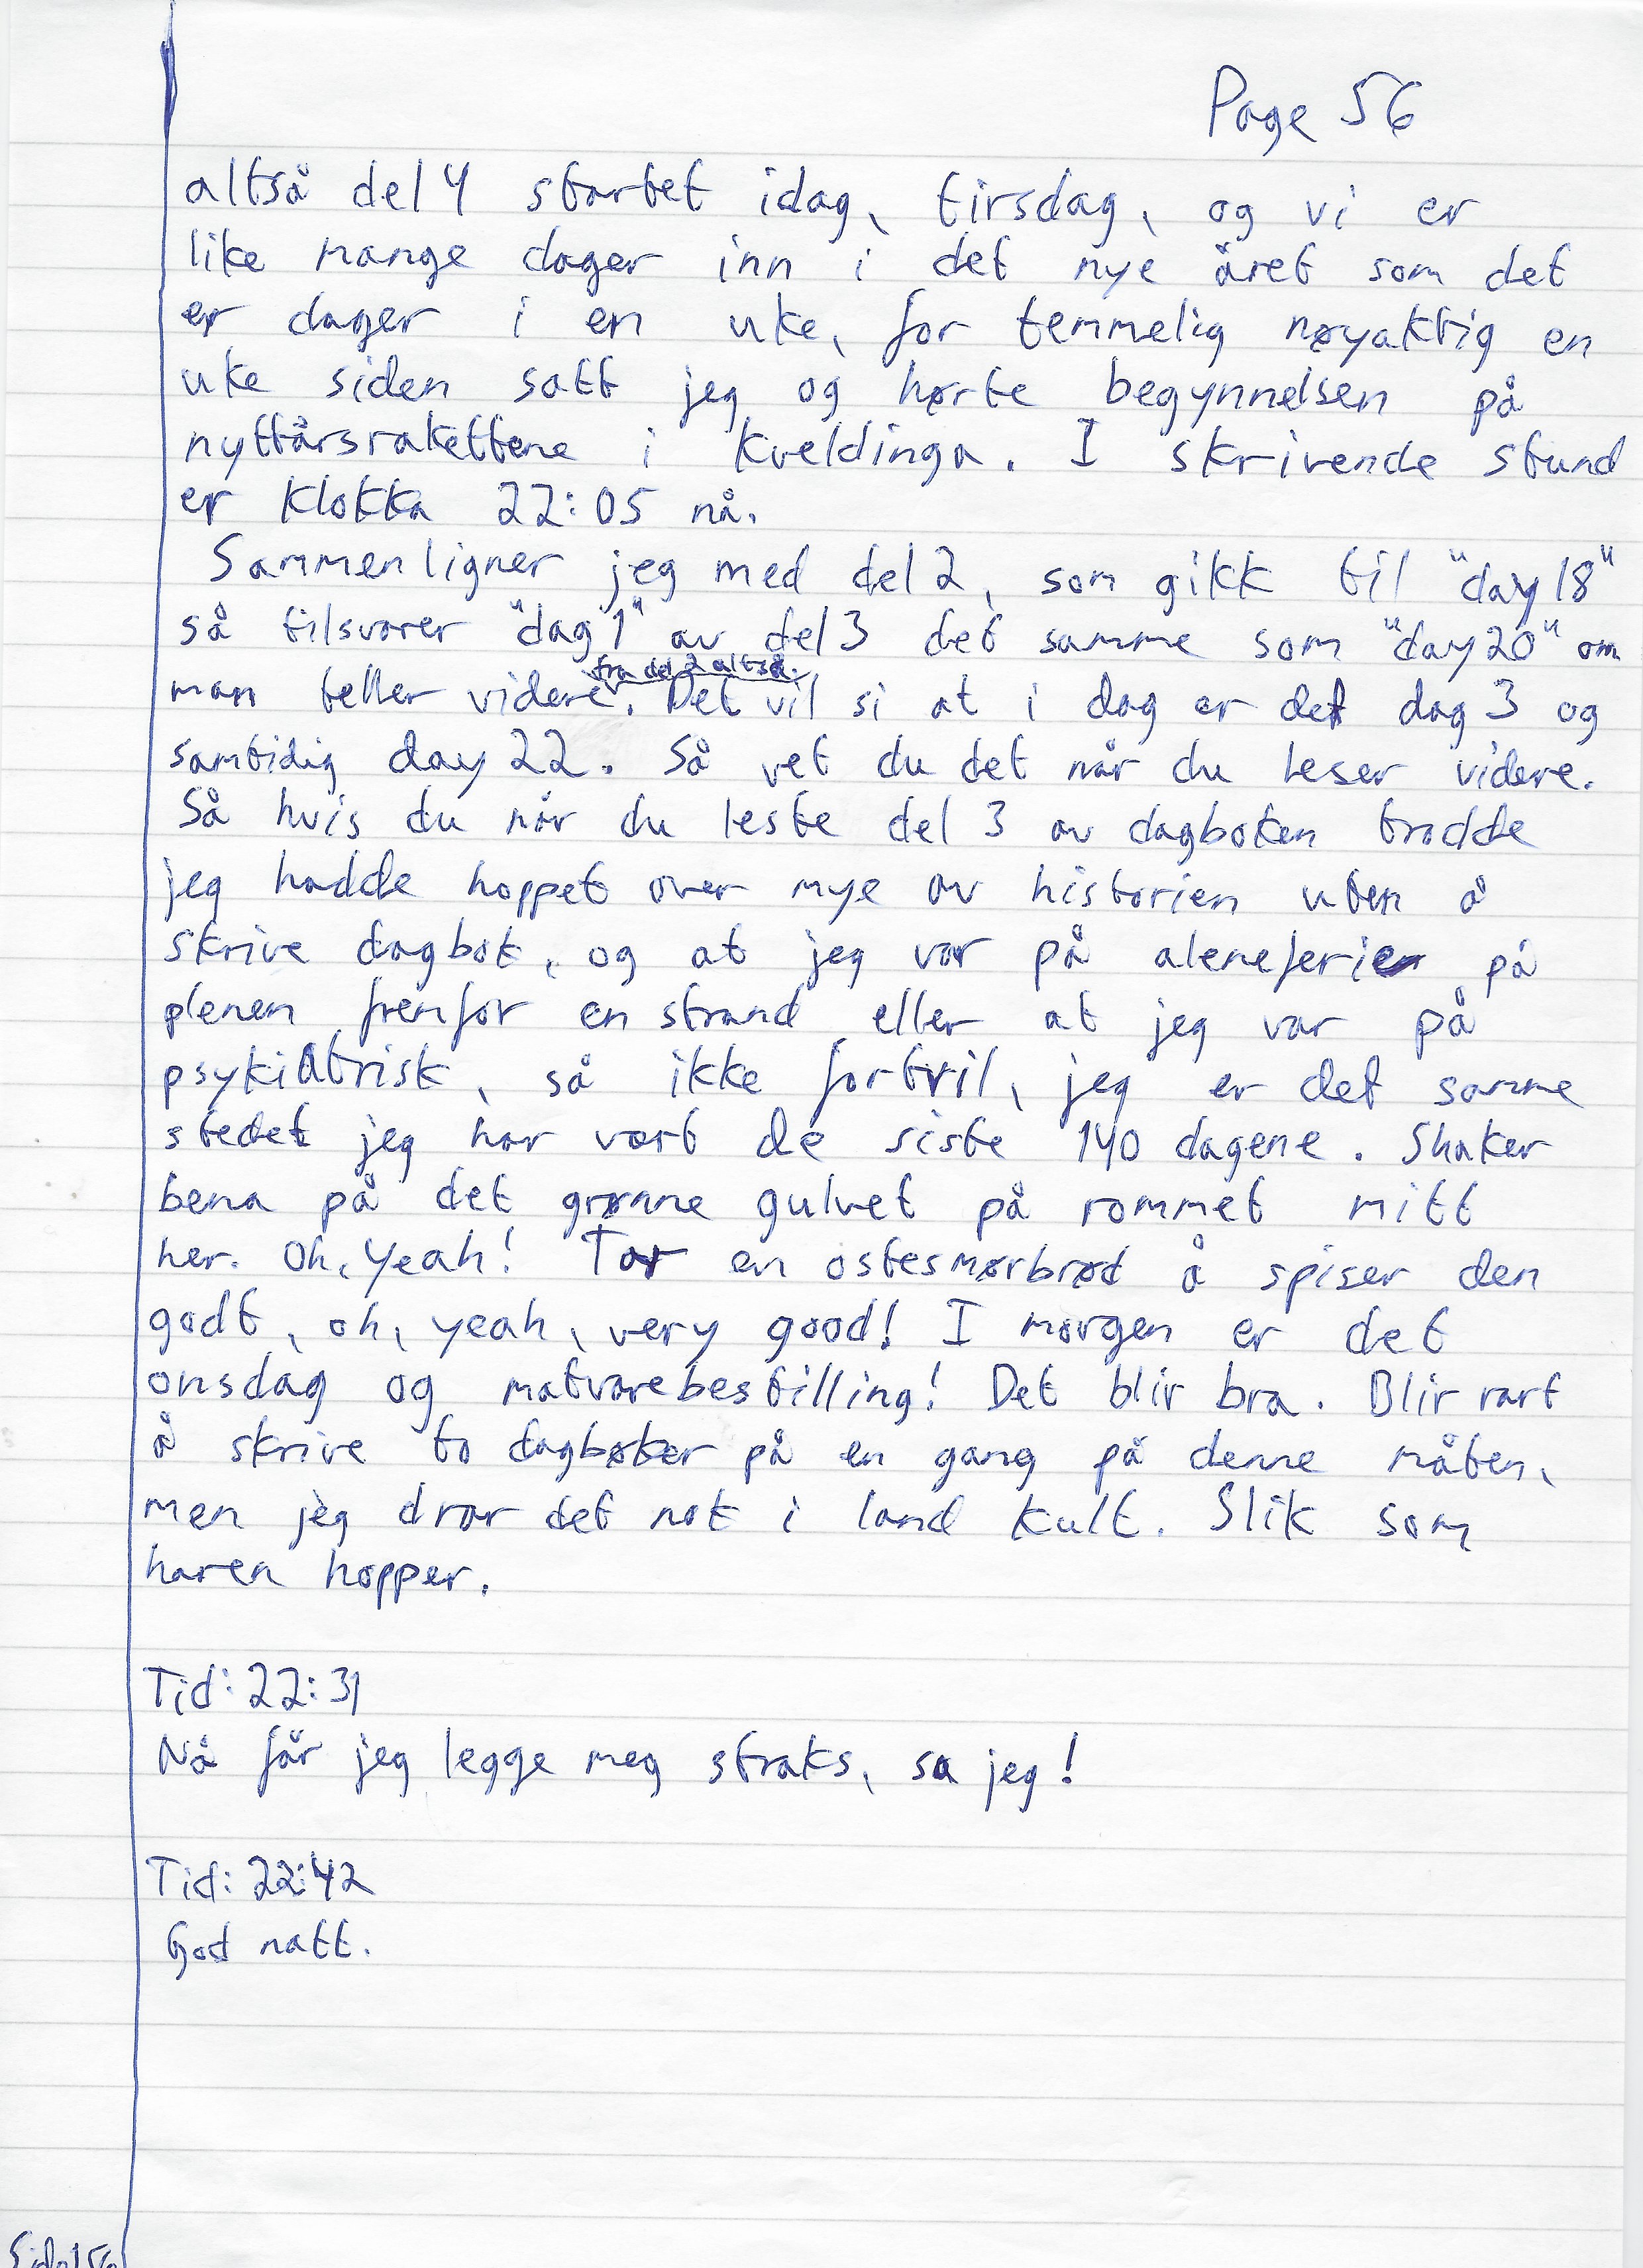 Page 56
altså del 4 startet idag, tirsdag, og vi er
like mange dager inn i det nye året som det
er dager i en uke, for temmelig nøyaktig en
uke siden satt jeg og hørte begynnelsen på
nyttårsrakettene i kveldinga. I skrivende stund
er klokka 22:05 nå.
Sammenligner jeg med del 2, som gikk til "day 18"
så tilsvarer "dag 1" av del 3 det samme som "day 20" om
fra del 2 altså.
man teller videre. Det vil si at i dag er det dag 3 og
samtidig day 22. Så vet du det når du leser videre.
Så hvis du når du leste del 3 av dagboken trodde
jeg hadde hoppet over mye av historien uten å
skrive dagbok, og at jeg var på aleneferien på
plenen fremfor en strand eller at jeg var på
psykiatrisk, så ikke fortvil, jeg er det samme
stedet jeg har vært de siste 140 dagene. Shaker
bena på det grønne gulvet på rommet mitt
her. Oh, yeah! Tar en ostesmørbrød å spiser den
godt, oh, yeah, very good! I morgen er det
onsdag og matvarebestilling! Det blir bra. Blir rart
å skrive to dagbøker på en gang på denne måten,
men jeg drar det nok i land kult. Slik som
haren hopper.
Tid: 22:31
Nå får jeg legge meg straks, sa jeg!
Tid: 22:42
God natt.